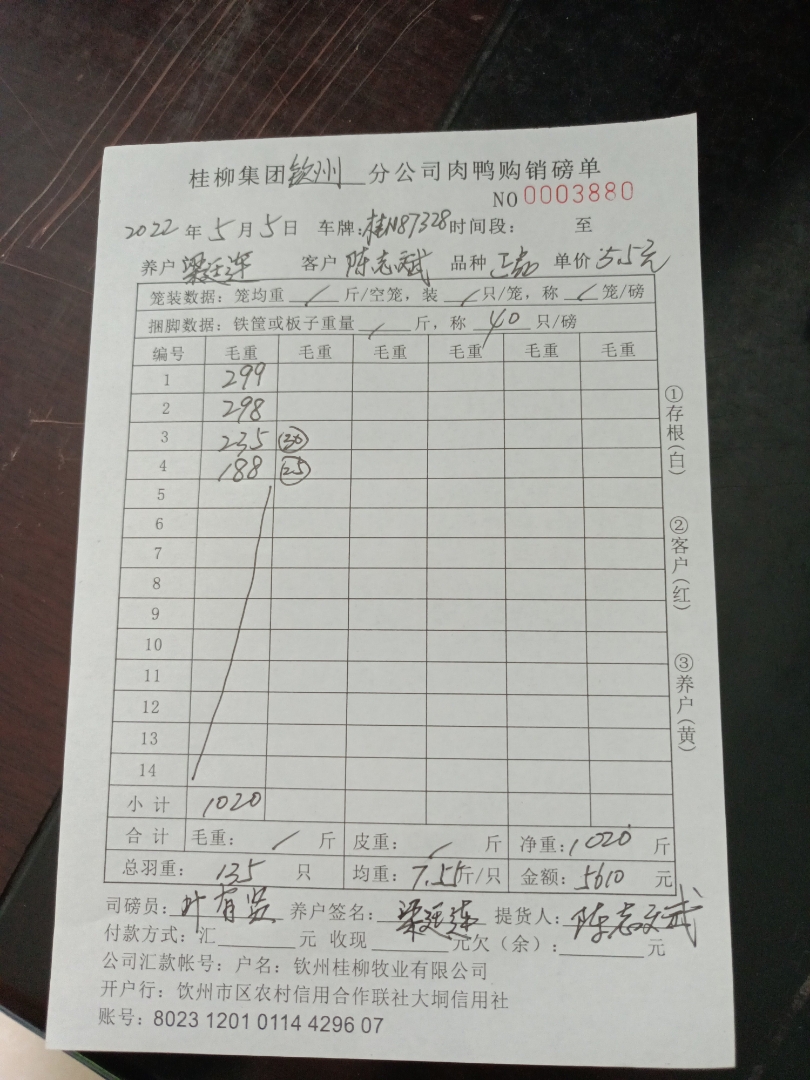 桂柳集团钦州分公司肉鸭购销磅单
NO 0003880
2022年5月5日 车牌:桂N87328 时间段: 至
养户 梁廷 客户 陈志斌 品种 单价 5.5元
笼装数据: 笼均重 / 斤/空笼, 装 / 只/笼, 称 / 笼/磅
捆脚数据: 铁筐或板子重量 / 斤, 称 40 只/磅
编号 毛重 毛重 毛重 毛重 毛重 毛重
1 299
2 298
3 235 (30)
4 188 (25)
5
6
7
8
9
10
11
12
13
14
小计 1020
合计 毛重: / 斤 皮重: / 斤 净重: 1020 斤
总羽重: 135 只 均重: 7.55斤/只 金额: 5610 元
司磅员: 叶有贤 养户签名: 梁廷 提货人: 陈志斌
付款方式: 汇 元 收现 元欠(余): 元
公司汇款帐号: 户名: 钦州桂柳牧业有限公司
开户行: 钦州市区农村信用合作联社大垌信用社
账号: 8023 1201 0114 4296 07
①存根(白)
②客户(红)
③养户(黄)